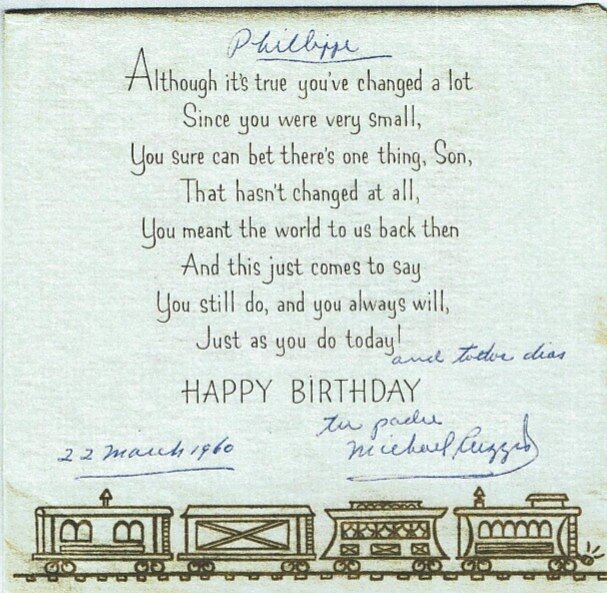 Phillippe
Although it's true you've changed a lot
Since you were very small,
You sure can bet there's one thing, Son,
That hasn't changed at all,
You meant the world to us back then
And this just comes to say
You still do, and you always will,
Just as you do today!
and dias
HAPPY BIRTHDAY
tu padre
22 March 1960
Michael